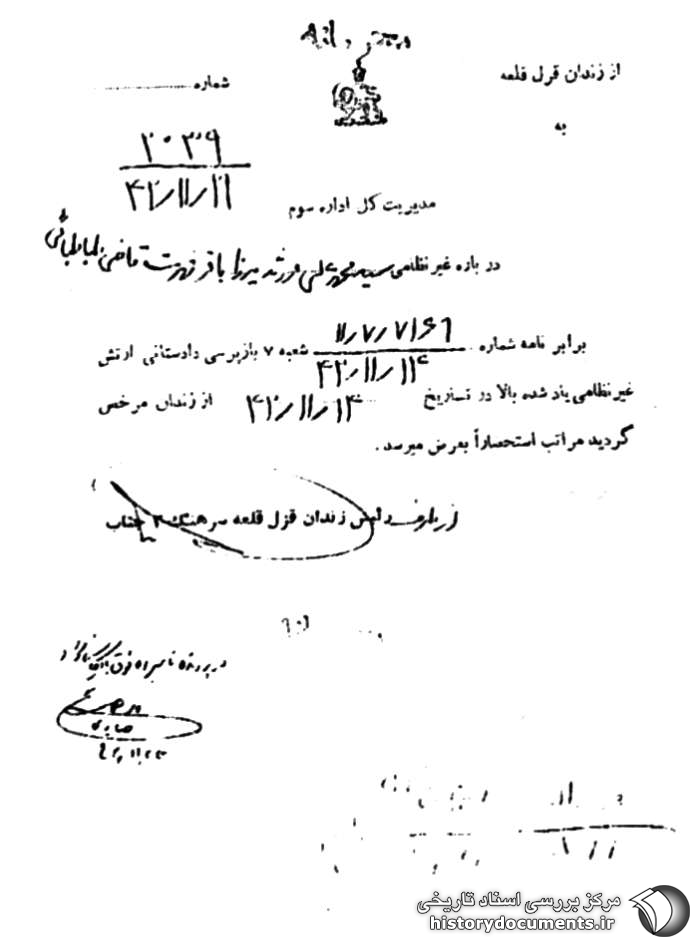 از زندان قزل قلعه
شماره
به
۲۰۳۹
۴۲/۱۱/۲۱
مدیریت کل اداره سوم
در باره غیرنظامی سید محمد علی فرزند میرزا باقر شهرت قاضی طباطبائی
برابر نامه شماره ۱۱/۷/۷۱۶۹ شعبه ۷ بازپرسی دادستانی ارتش
۴۲/۱۱/۱۴
غیرنظامی یاد شده بالا در تاریخ ۴۲/۱۱/۱۴ از زندان مرخص
گردید مراتب استحضاراً بعرض میرسد.
از طرف رئیس زندان قزل قلعه سرهنگ ۲ جناب
در پرونده نامبرده فوق
۴۲/۱۱/۲۳
مرکز بررسی اسناد تاریخی
historydocuments.ir